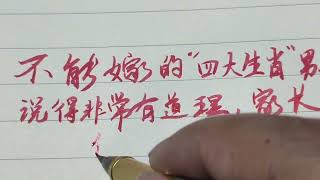 不能嫁的“四大生肖”男
说得非常有道理，家长